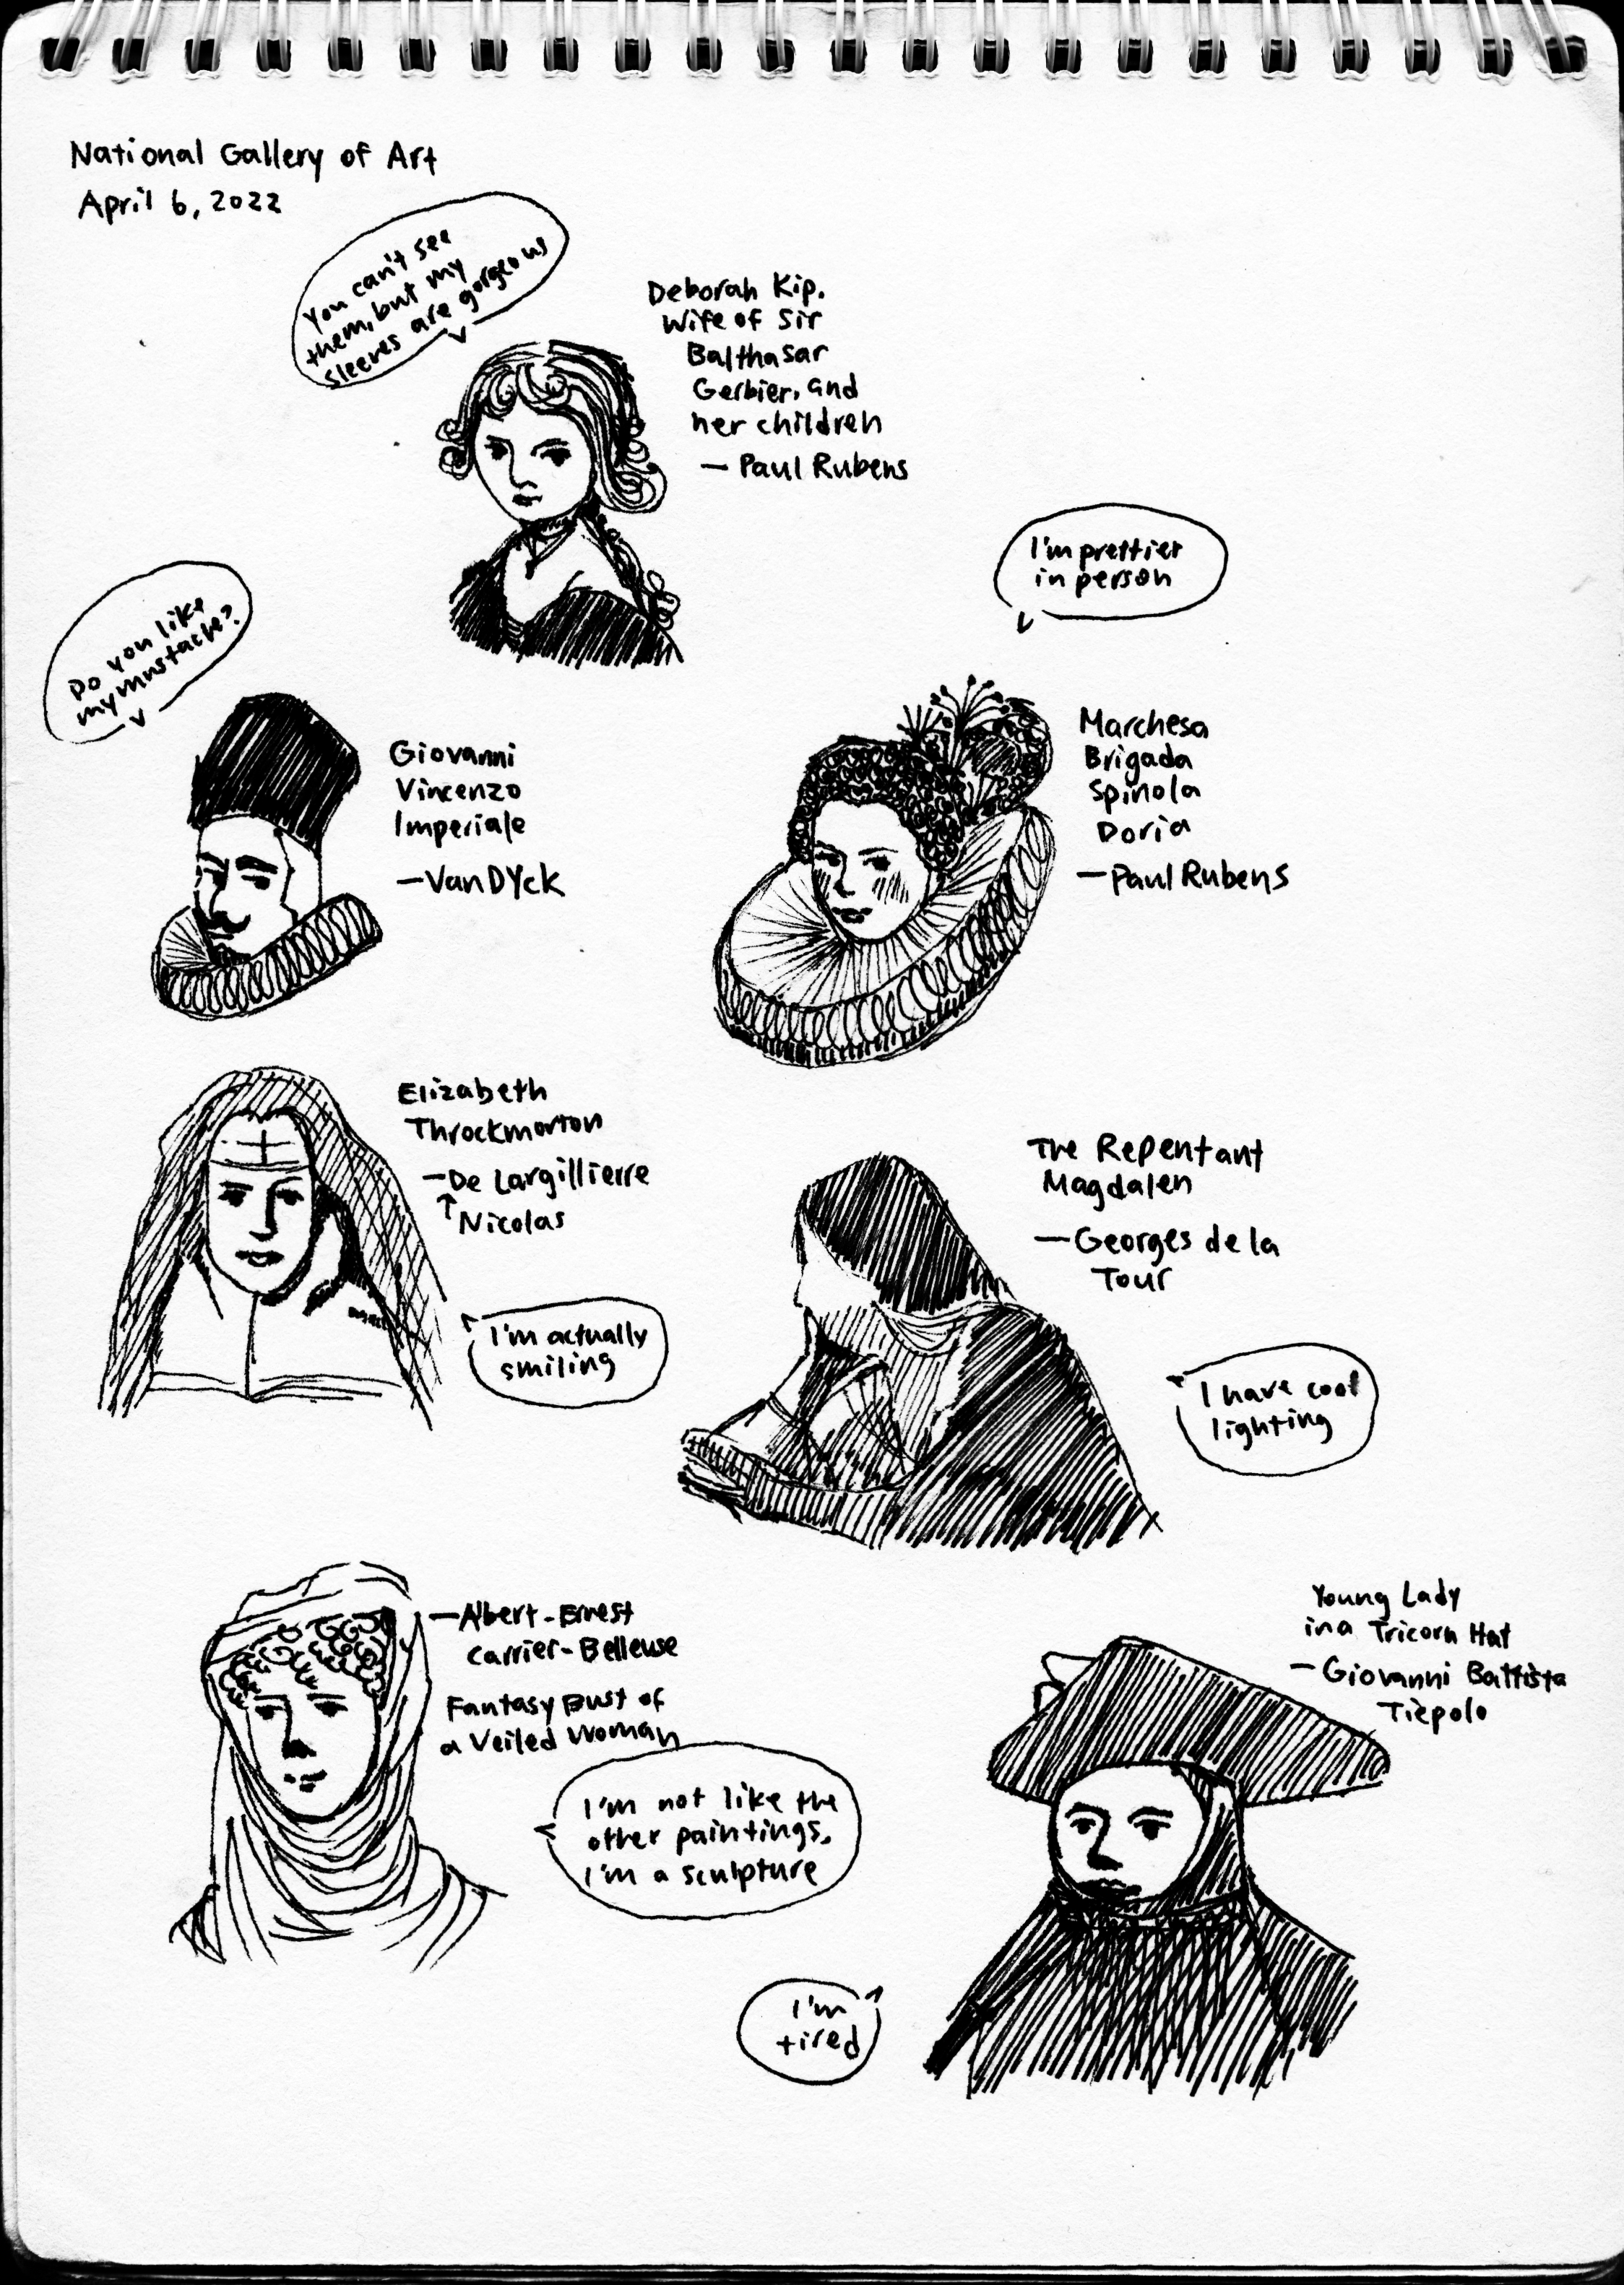 National Gallery of Art
April 6, 2022
You can't see
them, but my
sleeves are gorgeous
Deborah Kip,
Wife of Sir
Balthasar
Gerbier, and
her children
— Paul Rubens
I'm prettier
in person
Do you like
my mustache?
Giovanni
Vincenzo
Imperiale
— Van Dyck
Marchesa
Brigada
Spinola
Doria
— Paul Rubens
Elizabeth
Throckmorton
— De Largillierre
↑ Nicolas
I'm actually
smiling
The Repentant
Magdalen
— Georges de la
Tour
I have cool
lighting
— Albert-Ernest
Carrier-Belleuse
Fantasy Bust of
a Veiled Woman
I'm not like the
other paintings,
I'm a sculpture
Young Lady
in a Tricorn Hat
— Giovanni Battista
Tiepolo
I'm
tired